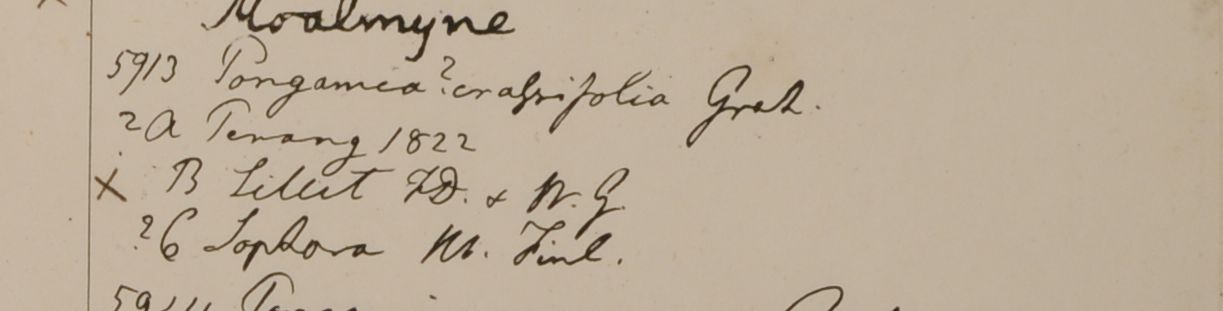 Moalmyne
5913 Pongamea? crassifolia Grah.
? A Penang 1822
x B Sillet F.D. & W.G.
? C Sophora M. Finl.